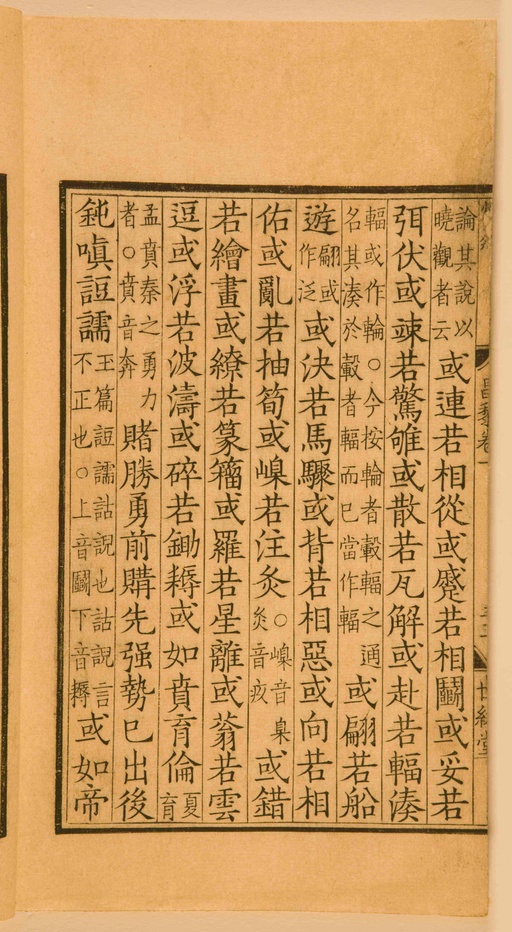 論其說以曉觀者云或連若相從或蹙若相鬭或妥若
弭伏或竦若驚雊或散若瓦解或赴若輻湊
輻或作輪○今按輪者轂輻之通名其湊於轂者輻而已當作輻或翩若船
遊翩或作泛或決若馬驟或背若相惡或向若相
佑或亂若抽筍或嵲若注灸○嵲音臬灸音疚或錯
若繪畫或繚若篆籀或羅若星離或蓊若雲
逗或浮若波濤或碎若鋤耨或如賁育倫夏育
孟賁秦之勇力者○賁音奔賭勝勇前購先强勢已出後
鈍嗔䛠譳王篇䛠譳詀說也詀說言不正也○上音鬭下音耨或如帝
昌黎卷一
世綵堂